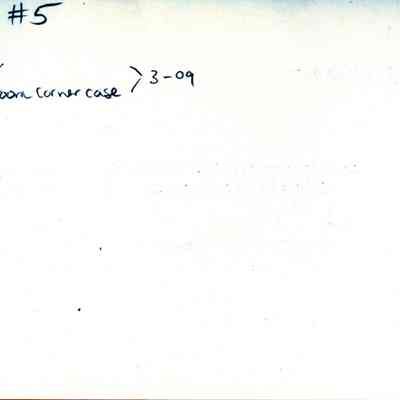 #5
oom corner case > 3-09